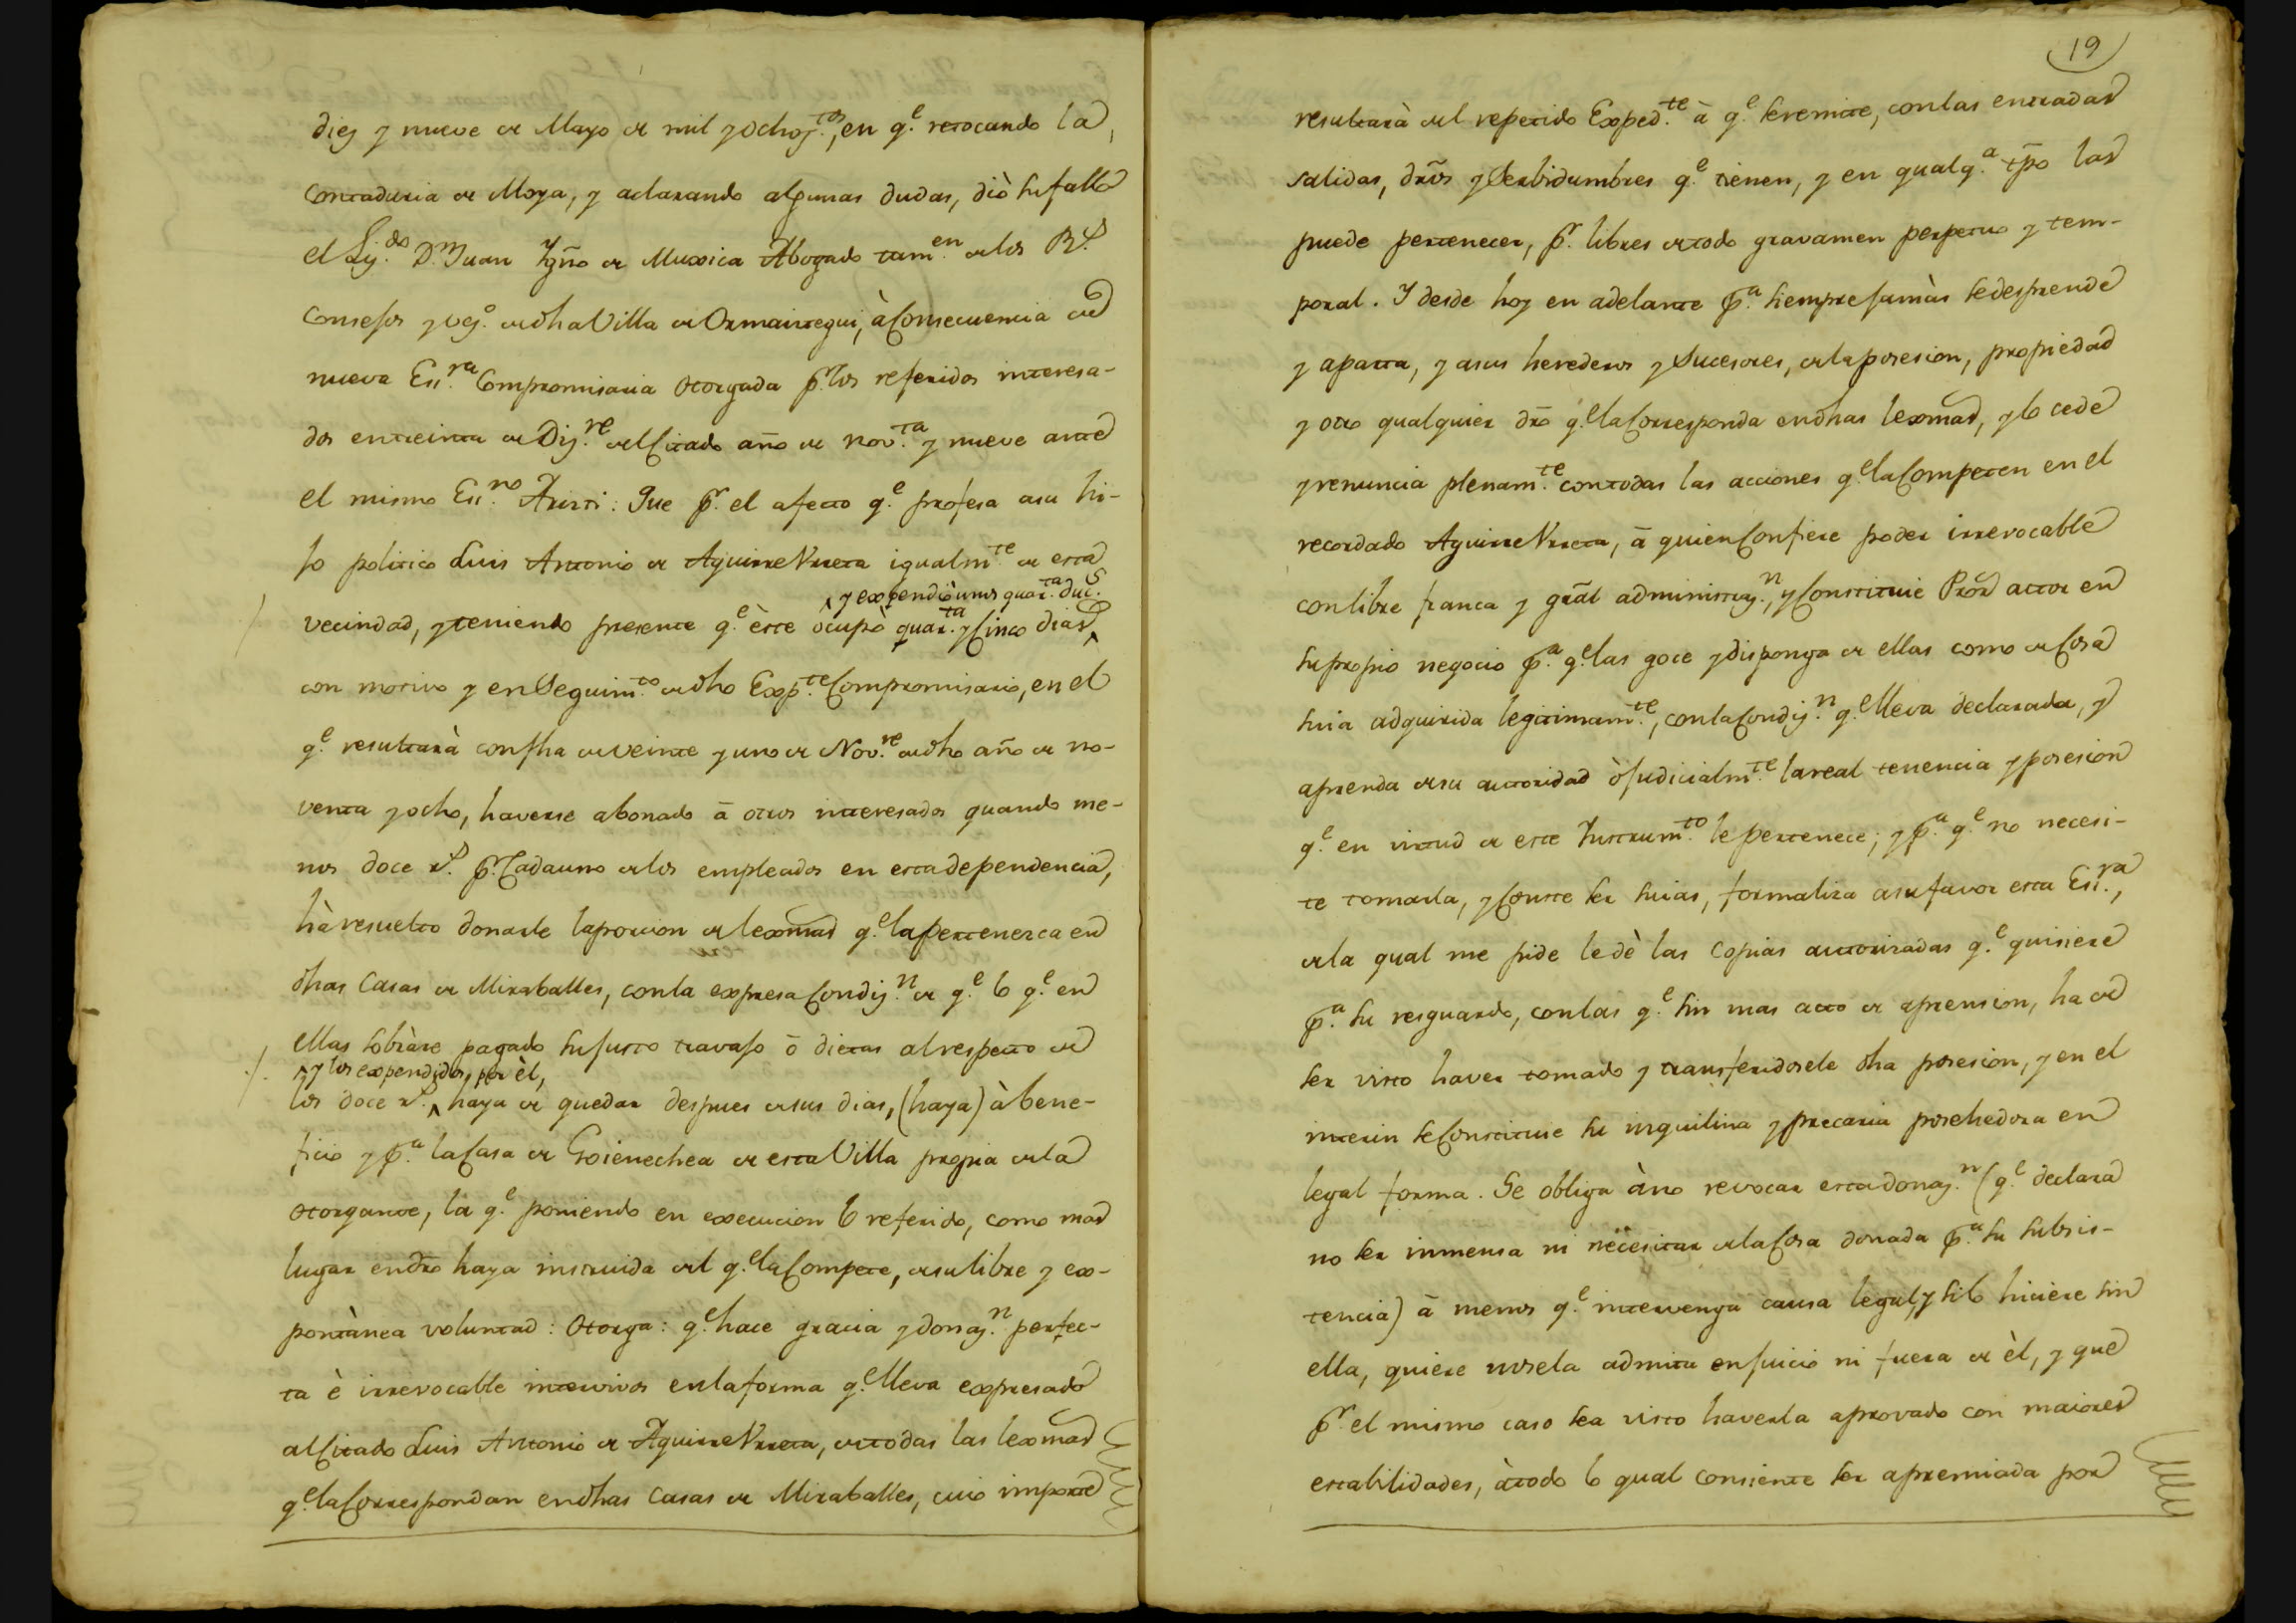 diez y nueve de Mayo de mil y ochoz.tos, en q.e retocando la
contaduria de Moya, y aclarando algunas dudas, diò su fallo
el Liz.do D.n Juan Ygño de Muxica Abogado tam.en de los R.s
Consejos y vez.o de dha Villa de Ormaiztegui, à consecuencia de
nueva Esc.ra Compromisaria otorgada p.r los referidos interesa-
dos en treinta de Diz.re del citado año de nov.ta y nueve ante
el mismo Ess.no Aristi: Que p.r el afecto q.e profesa a su hi-
jo politico Luis Antonio de Aguirre Urreta igualm.te de esta
y expendiò unos quar.ta duc.s
vecindad, y teniendo presente q.e èste ocupò quar.ta y cinco dias
con motivo y en seguim.to de dho Exp.te Compromisario, en el
q.e resultarà con fha de veinte y uno de Nov.re de dho año de no-
venta y ocho, haverse abonado à otros interesados quando me-
nos doce r.s p.r cada uno de los empleados en esta dependencia,
hà resuelto donarle la porcion de lexmas q.e la pertenezca en
dhas Casas de Miraballes, con la expresa condiz.n de q.e lo q.e en
ellas sobràre pagado su justo travajo ò dietas al respecto de
y los expendidos por èl,
los doce r.s haya de quedar despues de sus dias, (haya) à bene-
ficio y p.a la Casa de Goienechea de esta Villa propia de la
otorgante, la q.e poniendo en execucion lo referido, como mas
lugar en dro haya instruida del q.e la compete, de su libre y ex-
pontànea voluntad: Otorga: q.e hace gracia y donaz.n perfec-
ta è irrevocable intervivos en la forma q.e lleva expresado
al citado Luis Antonio de Aguirre Urreta, de todas las lexmas
q.e la correspondan en dhas Casas de Miraballes, cuio importe
19
resultarà del repetido Exped.te à q.e se remite, con las entradas
salidas, dros y Serbidumbres q.e tienen, y en qualq.a tpo las
puede pertenecer, p.r libres de todo gravamen perpetuo y tem-
poral. Y desde hoy en adelante p.a siempre jamàs se desprende
y aparta, y a sus herederos y sucesores, de la posesion, propiedad
y otro qualquier dro q.e la corresponda en dhas lexmas, y lo cede
y renuncia plenam.te con todas las acciones q.e la competen en el
recordado Aguirre Urreta, à quien confiere poder irrevocable
con libre franca y gral administraz.n, y constituie Pror actor en
su propio negocio p.a q.e las goce y disponga de ellas como de cosa
suia adquirida legitimam.te, con la condiz.n q.e lleva declarada, y
aprenda de su autoridad ò judicialm.te la real tenencia y posesion
q.e en virtud de este Instrum.to le pertenece; y p.a q.e no necesi-
te tomarla, y conste ser suias, formaliza a su favor esta Esc.ra,
de la qual me pide le dè las copias autorizadas q.e quisiere
p.a su resguardo, con las q.e sin mas acto de aprension, ha de
ser visto haver tomado y transferidosele dha posesion, y en el
interin se constituie su inquilina y precaria posehedora en
legal forma. Se obliga à no revocar esta donaz.n (q.e declara
no ser inmensa ni necesitar de la cosa donada p.a su subsis-
tencia) à menos q.e intervenga causa legal, y si lo hiciere sin
ella, quiere no se la admita en juicio ni fuera de èl, y que
p.r el mismo caso sea visto haverla aprovado con maiores
estabilidades, à todo lo qual consiente ser apremiada por